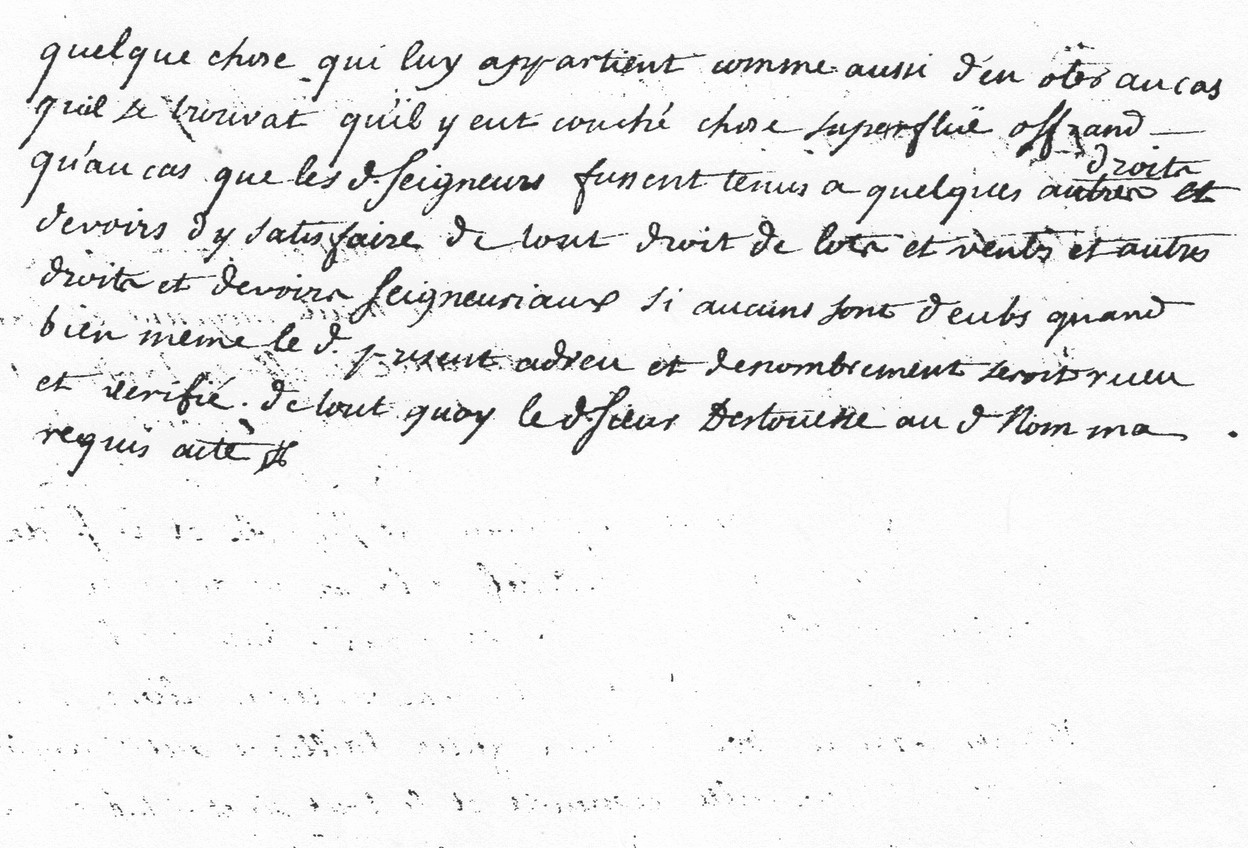 quelque chose qui luy appartient comme aussi d'en oter au cas
quil se trouvat qu'il y eut couché chose superfluë offrand
qu'au cas que les d. seigneurs fussent tenus a quelques autres droits et
devoirs d'y satisfaire de tout droit de lots et vents et autres
droits et devoirs seigneuriaux si aucuns sont deubs quand
bien meme le d. present adveu et denombrement seroit receu
et verifié. de tout quoy le d sieur Destouesse au d Nom ma
requis acte